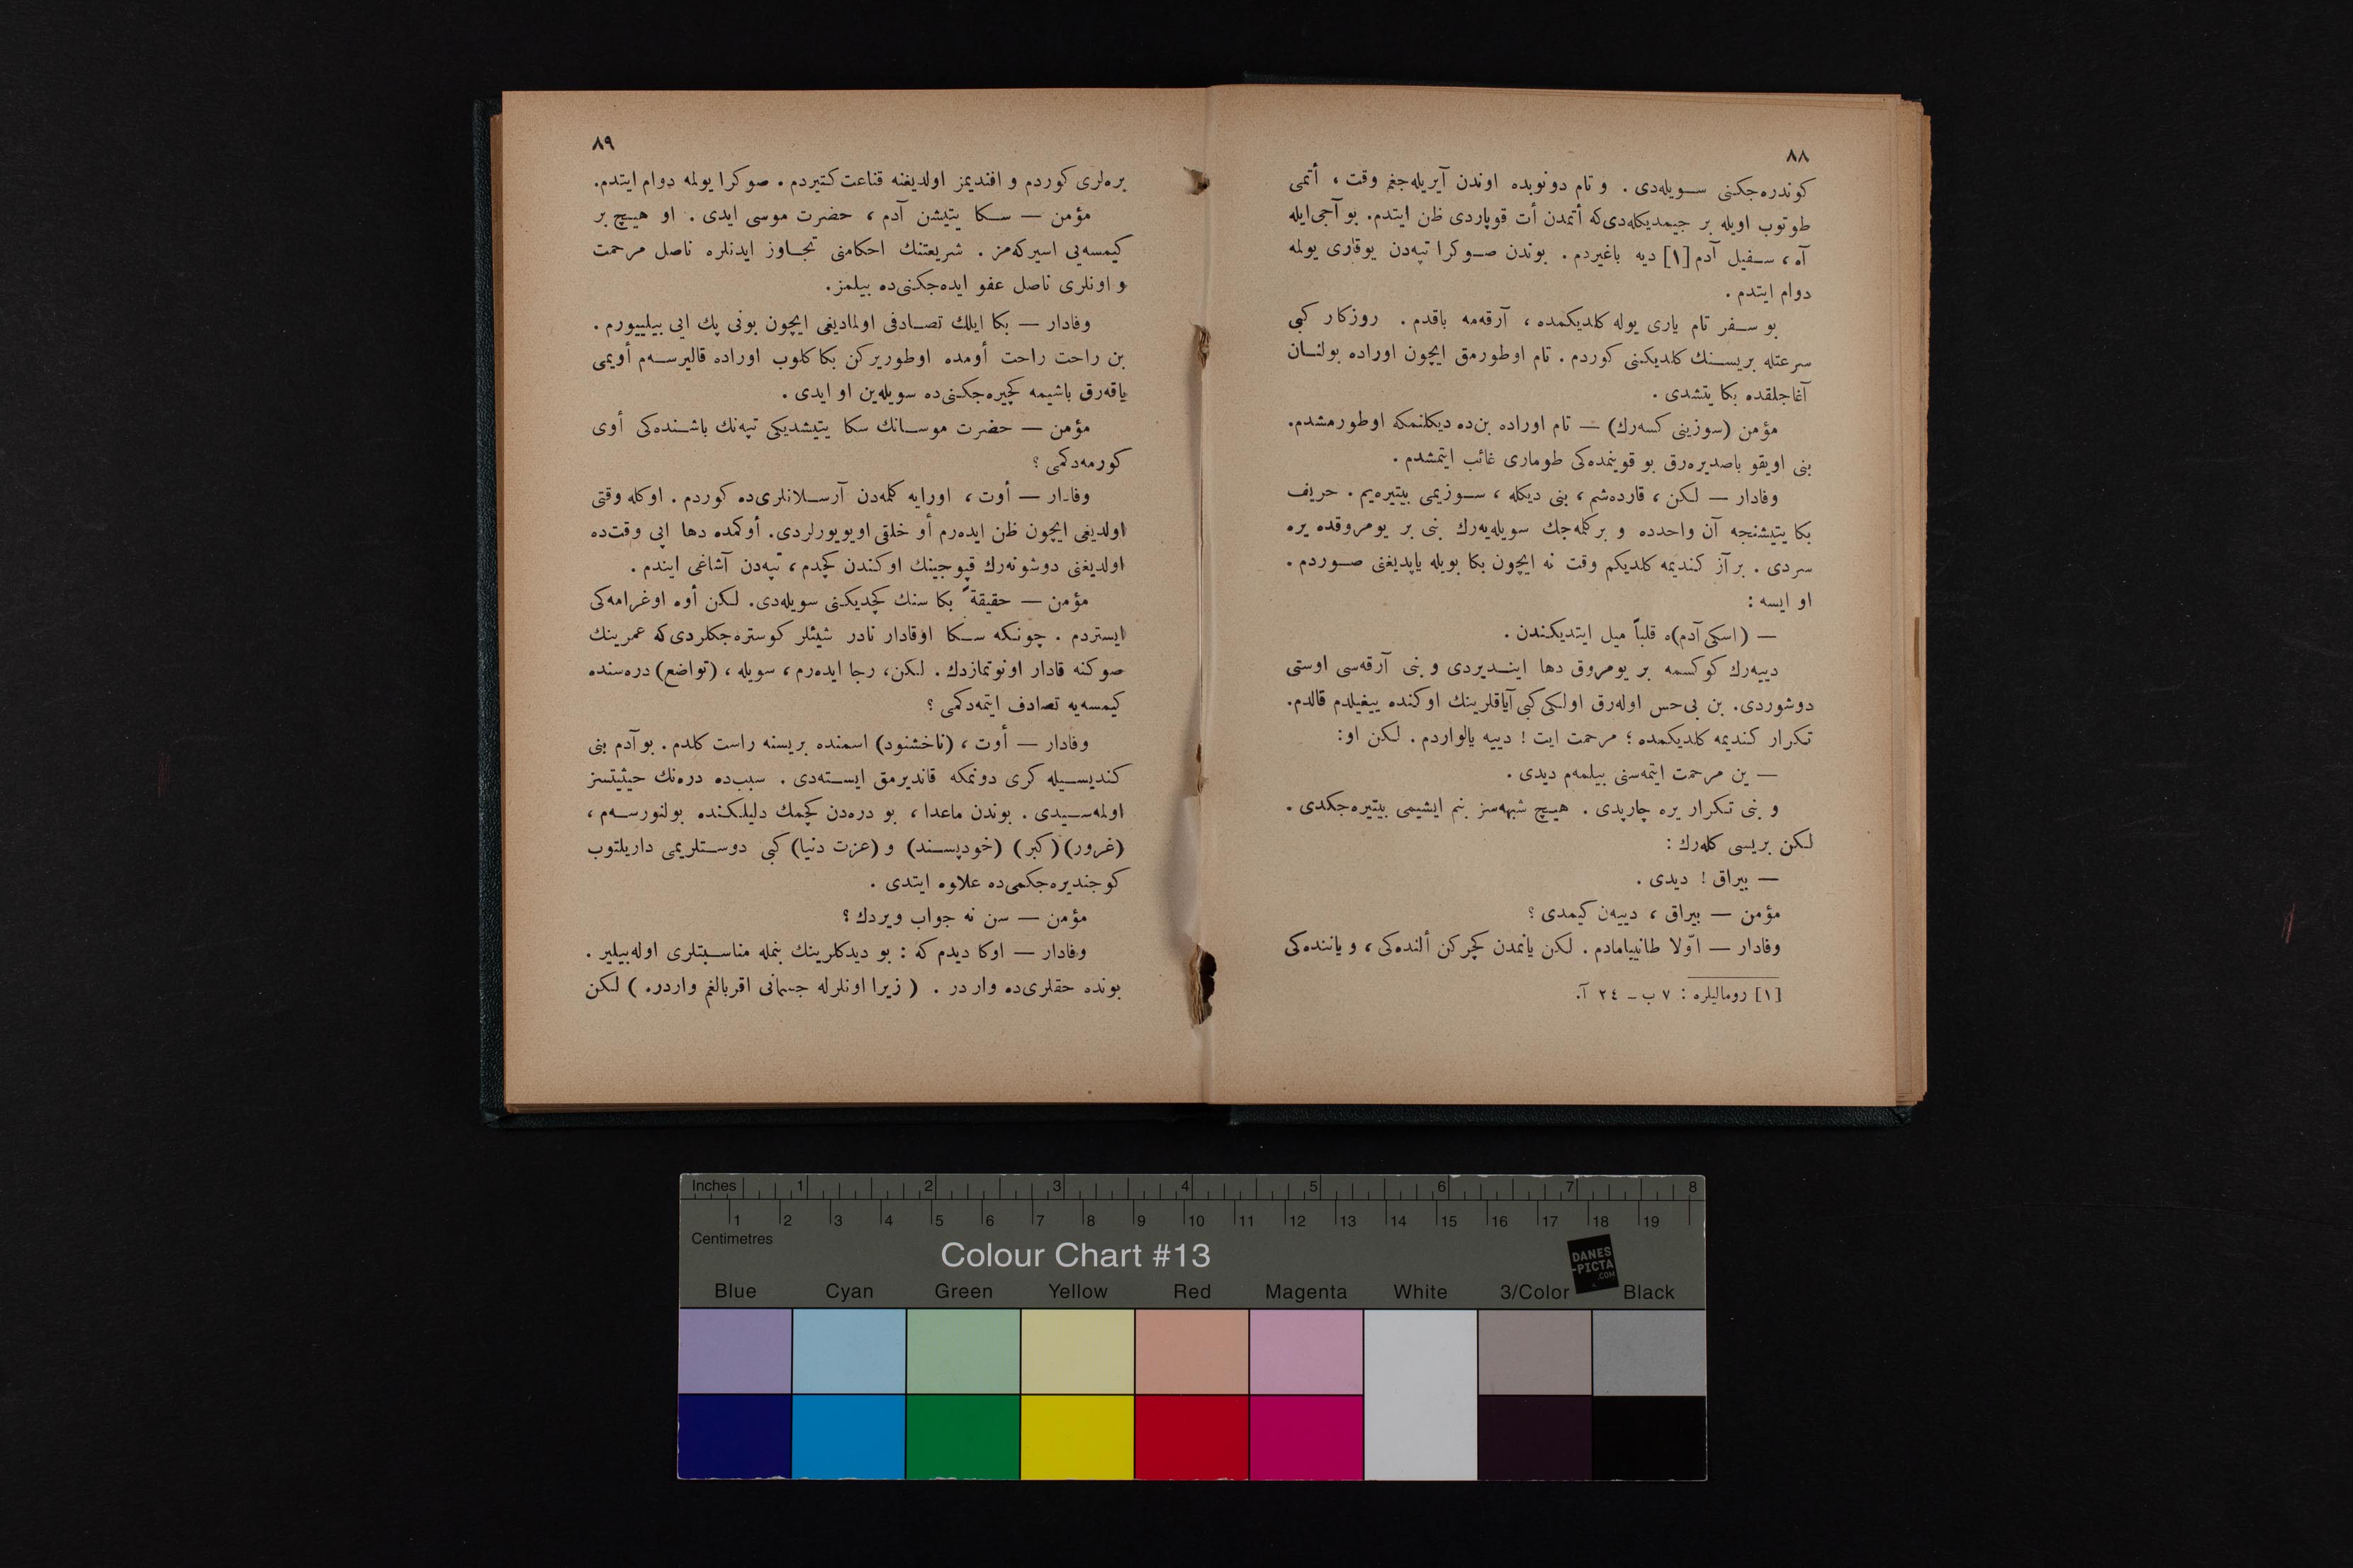 ٨٨
كوندره‌جكنی سویله‌دی . و تام دونوبده اوندن آیریله‌جغم وقت ، أتمی
طوتوب اویله بر جیمدیكله‌دی‌كه أتمدن أت قوپاردی ظن ایتدم. بو آجی‌ایله
آه ، سفیل آدم [١] دیه باغیردم . بوندن صوكرا تپه‌دن یوقاری یولمه
دوام ایتدم .
بو سفر تام یاری یوله كلدیكمده ، آرقه‌مه باقدم . روزكار كبی
سرعتله بریسنك كلدیكنی كوردم . تام اوطورمق ایچون اوراده بولنان
آغاجلقده بكا یتشدی .
مؤمن (سوزینی كسه‌رك) — تام اوراده بن‌ده دیكلنمكه اوطورمشدم.
بنی اویقو باصدیره‌رق بو قوینمده‌كی طوماری غائب ایتمشدم .
وفادار — لكن ، قارده‌شم ، بنی دیكله ، سوزیمی بیتیره‌یم . حریف
بكا یتیشنجه آن واحدده و بر كلمه‌جك سویله‌یه‌رك بنی بر یومروقده یره
سردی . بر آز كندیمه كلدیكم وقت نه ایچون بكا بویله یاپدیغنی صوردم .
او ایسه :
— (اسكی آدم)ه قلباً میل ایتدیكندن .
دییه‌رك كوكسمه بر یومروق دها ایندیردی و بنی آرقه‌سی اوستی
دوشوردی. بن بی‌حس اوله‌رق اولكی كبی آیاقلرینك اوكنده ییغیلدم قالدم.
تكرار كندیمه كلدیكمده ؛ مرحمت ایت ! دییه یالواردم . لكن او:
— ین مرحمت ایتمه‌سنی بیلمه‌م دیدی .
و بنی تكرار یره چارپدی . هیچ شبهه‌سز بنم ایشیمی بیتیره‌جكدی .
لكن بریسی كله‌رك :
— بیراق ! دیدی .
مؤمن — بیراق ، دییه‌ن كیمدی ؟
وفادار — اوّلا طانییامادم . لكن یانمدن كچركن ألنده‌كی ، و یاننده‌كی
[١] رومالیلره : ٧ ب ـ ٢٤ آ.
٨٩
بره‌لری كوردم و افندیمز اولدیغنه قناعت كتیردم . صوكرا یولمه دوام ایتدم.
مؤمن — سكا یتیشن آدم ، حضرت موسی ایدی . او هیچ بر
كیمسه‌یی اسیركه‌مز . شریعتنك احكامنی تجاوز ایدنلره ناصل مرحمت
و اونلری ناصل عفو ایده‌جكنی‌ده بیلمز.
وفادار — بكا ایلك تصادفی اولمادیغی ایچون بونی پك ایی بیلییورم .
بن راحت راحت أومده اوطوریركن بكا كلوب اوراده قالیرسه‌م أویمی
یاقه‌رق باشیمه كچیره‌جكنی‌ده سویله‌ین او ایدی .
مؤمن — حضرت موسانك سكا یتیشدیكی تپه‌نك باشنده‌كی أوی
كورمه‌دكمی ؟
وفادار — أوت ، اورایه كلمه‌دن آرسلانلری‌ده كوردم . اوكله وقتی
اولدیغی ایچون ظن ایده‌رم أو خلقی اویویورلردی. أوكمده دها ایی وقت‌ده
اولدیغنی دوشونه‌رك قپوجینك اوكندن كچدم ، تپه‌دن آشاغی ایندم .
مؤمن — حقیقةً بكا سنك كچدیكنی سویله‌دی. لكن أوه اوغرامه‌كی
ایستردم . چونكه سكا اوقادار نادر شیئلر كوستره‌جكلردی‌كه عمرینك
صوكنه قادار اونوتمازدك . لكن، رجا ایده‌رم ، سویله ، (تواضع) دره‌سنده
كیمسه‌یه تصادف ایتمه‌دكمی ؟
وفادار — أوت ، (ناخشنود) اسمنده بریسنه راست كلدم . بو آدم بنی
كندیسیله كری دونمكه قاندیرمق ایسته‌دی . سبب‌ده دره‌نك حیثیتسز
اولمه‌سیدی . بوندن ماعدا ، بو دره‌دن كچمك دلیلكنده بولنورسه‌م ،
(غرور) (كبر) (خودپسند) و (عزت دنیا) كبی دوستلریمی داریلتوب
كوجندیره‌جكمی‌ده علاوه ایتدی .
مؤمن — سن نه جواب ویردك ؟
وفادار — اوكا دیدم كه : بو دیدكلرینك بنمله مناسبتلری اوله‌بیلیر .
بونده حقلری‌ده واردر . ( زیرا اونلرله جسمانی اقربالغم واردر. ) لكن
Inches 1 2 3 4 5 6 7 8
1 2 3 4 5 6 7 8 9 10 11 12 13 14 15 16 17 18 19
Centimetres
Colour Chart #13
DANES
-PICTA
.COM
Blue Cyan Green Yellow Red Magenta White 3/Color Black